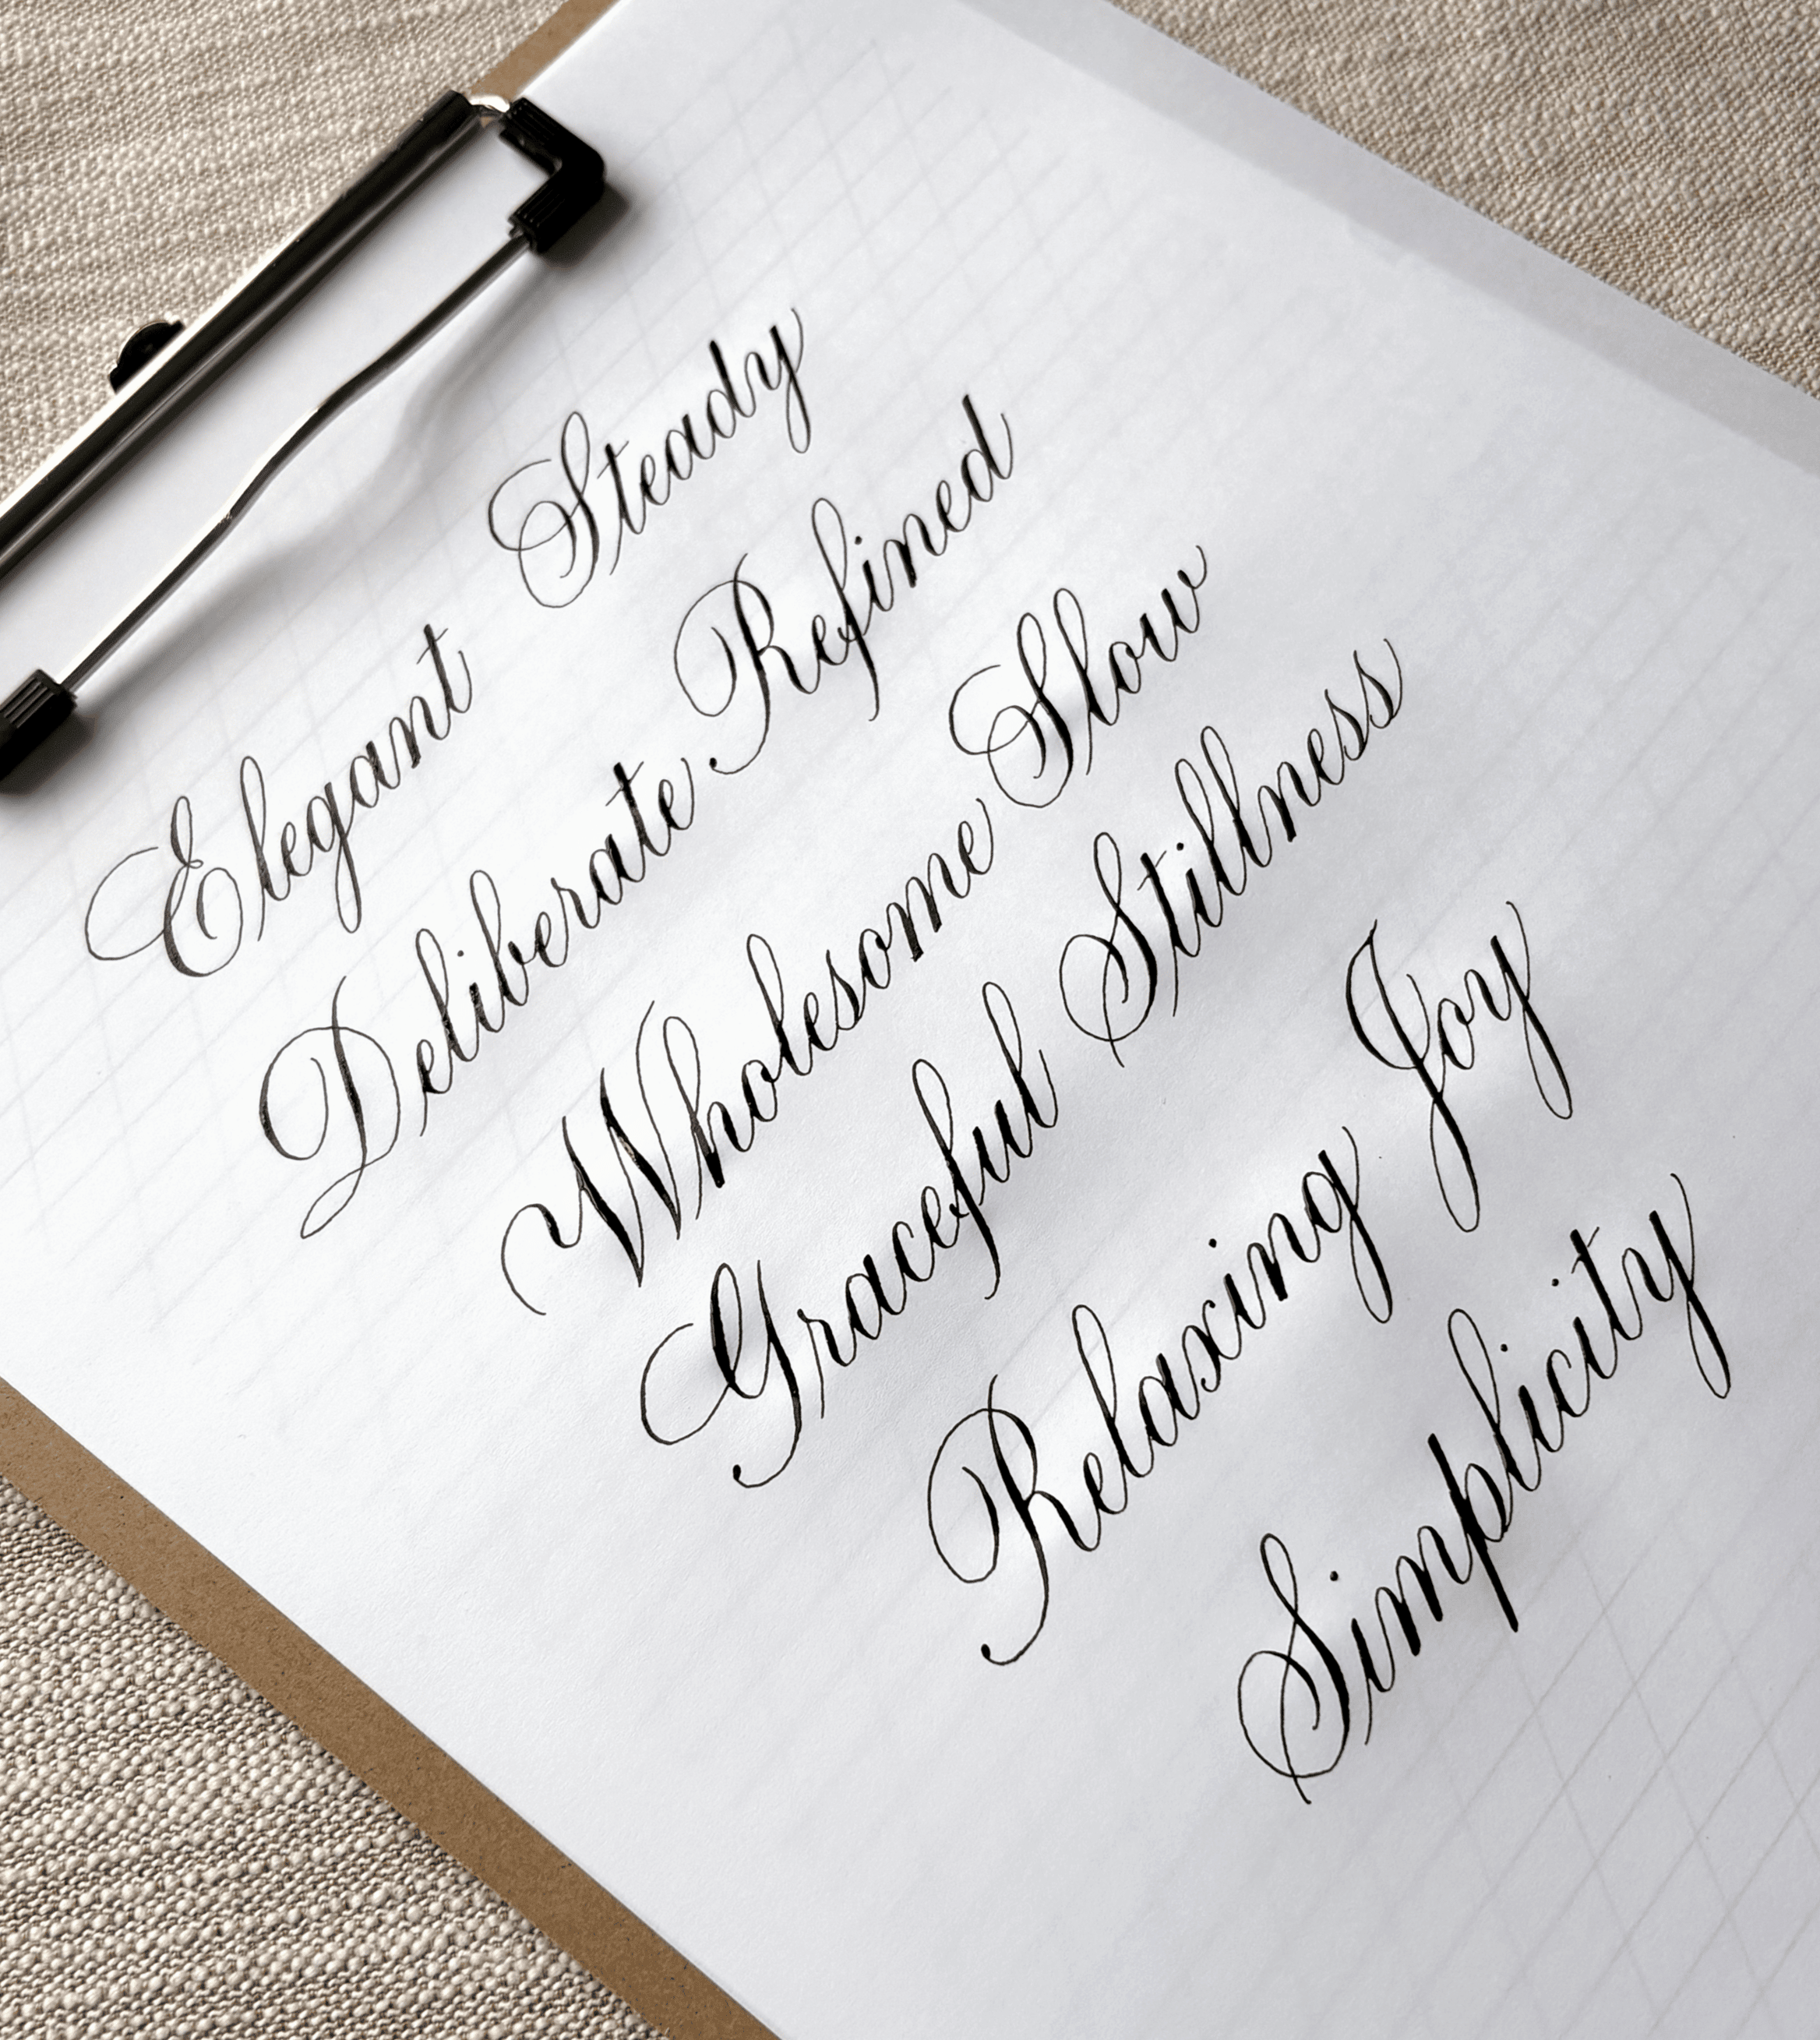 Elegant Steady
Deliberate Refined
Wholesome Slow
Graceful Stillness
Relaxing Joy
Simplicity